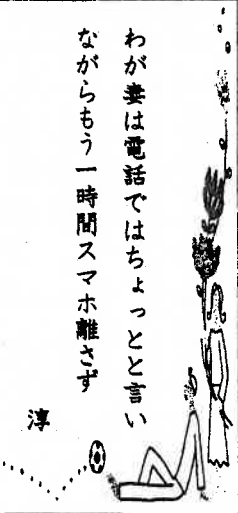 わが妻は電話ではちょっとと言い
ながらもう一時間スマホ離さず
淳